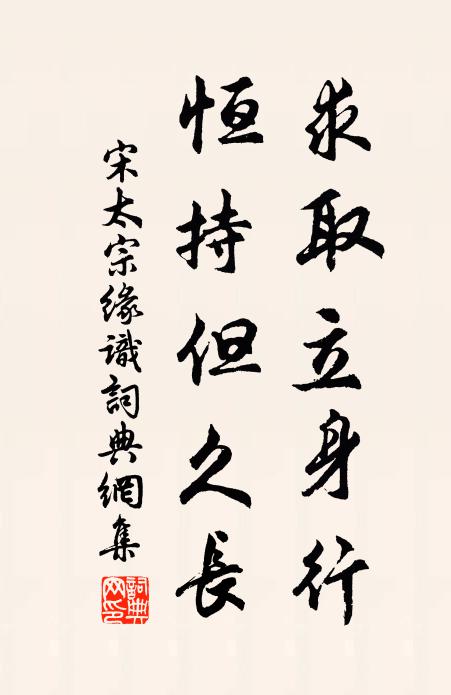 求取立身行
恒持但久長
宋太宗緣識詞典網集
詞典
網印